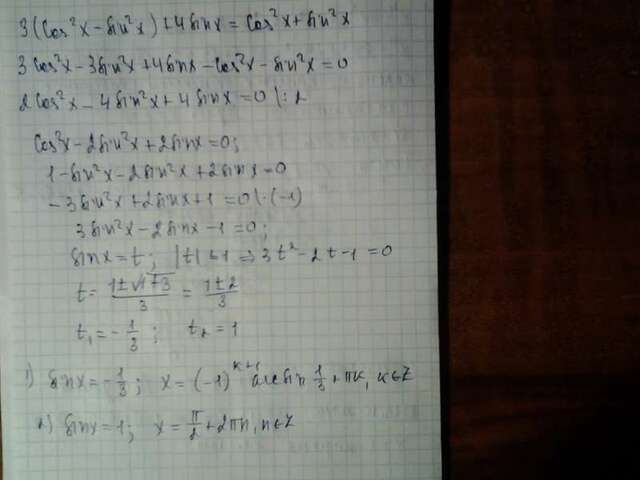 3(cos²x - sin²x) + 4sinx = cos²x + sin²x
3cos²x - 3sin²x + 4sinx - cos²x - sin²x = 0
2cos²x - 4sin²x + 4sinx = 0 |:2
cos²x - 2sin²x + 2sinx = 0;
1 - sin²x - 2sin²x + 2sinx = 0
-3sin²x + 2sinx + 1 = 0 |·(-1)
3sin²x - 2sinx - 1 = 0;
sinx = t; |t| ≤ 1 ⇒ 3t² - 2t - 1 = 0
t = (1±√(1+3))/3 = (1±2)/3
t₁ = -1/3; t₂ = 1
1) sinx = -1/3; x = (-1)^(k+1) arcsin 1/3 + πk, k∈Z
2) sinx = 1; x = π/2 + 2πn, n∈Z